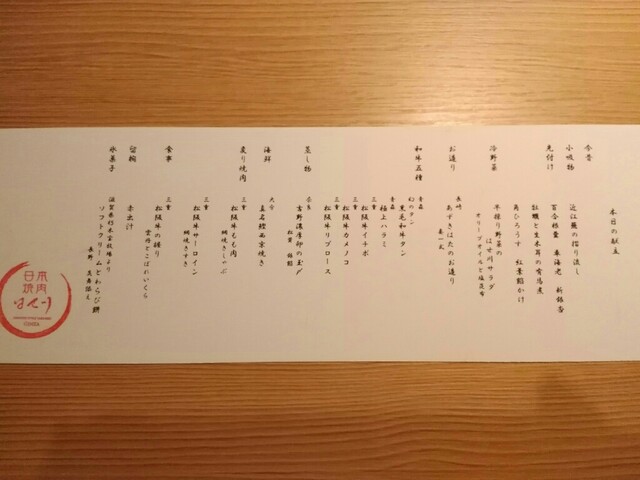 本日の献立
今昔
小吸物
近江蕪の摺り流し
先付け
百合根饅 車海老 新銀杏
牡蠣と生木耳の有馬煮
飛ひろうす 紅葉餡かけ
冷野菜
半採り野菜の
はせ川サラダ
オリーブオイルと塩昆布
お造り
長崎
あずきはたのお造り
和牛五種
青森
幻のタン
黒毛和牛タン
青森
極上ハラミ
三重
松阪牛イチボ
三重
松阪牛カメノコ
三重
松阪牛リブロース
蒸し物
奈良
吉野濃厚卵の玉〆
松茸 銀餡
海鮮
大分
真名鰹西京焼き
炙り焼肉
三重
松阪牛もも肉
網焼きしゃぶ
三重
松阪牛サーロイン
網焼きすき
食事
三重
松阪牛の握り
雲丹とこぼれいくら
留椀
赤出汁
氷菓子
滋賀県朽木宝牧場より
ソフトクリームとわらび餅
長野
日本
焼肉
はせ川
GINZA